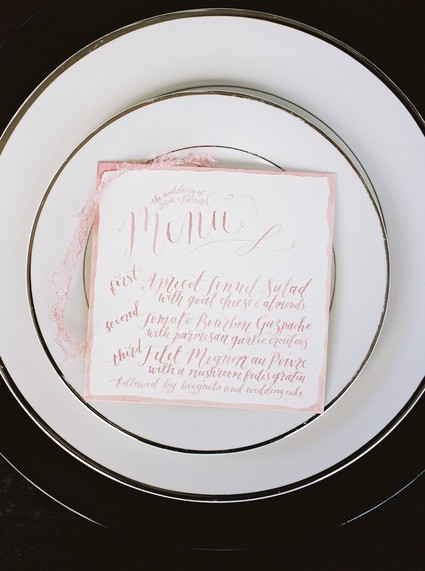 the wedding of
Menu
first Apricot Fennel Salad
with goat cheese & almonds
second Tomato Bourbon Gazpacho
with parmesan garlic croutons
third Filet Mignon au Poivre
with a mushroom frites gratin
followed by beignets and wedding cake